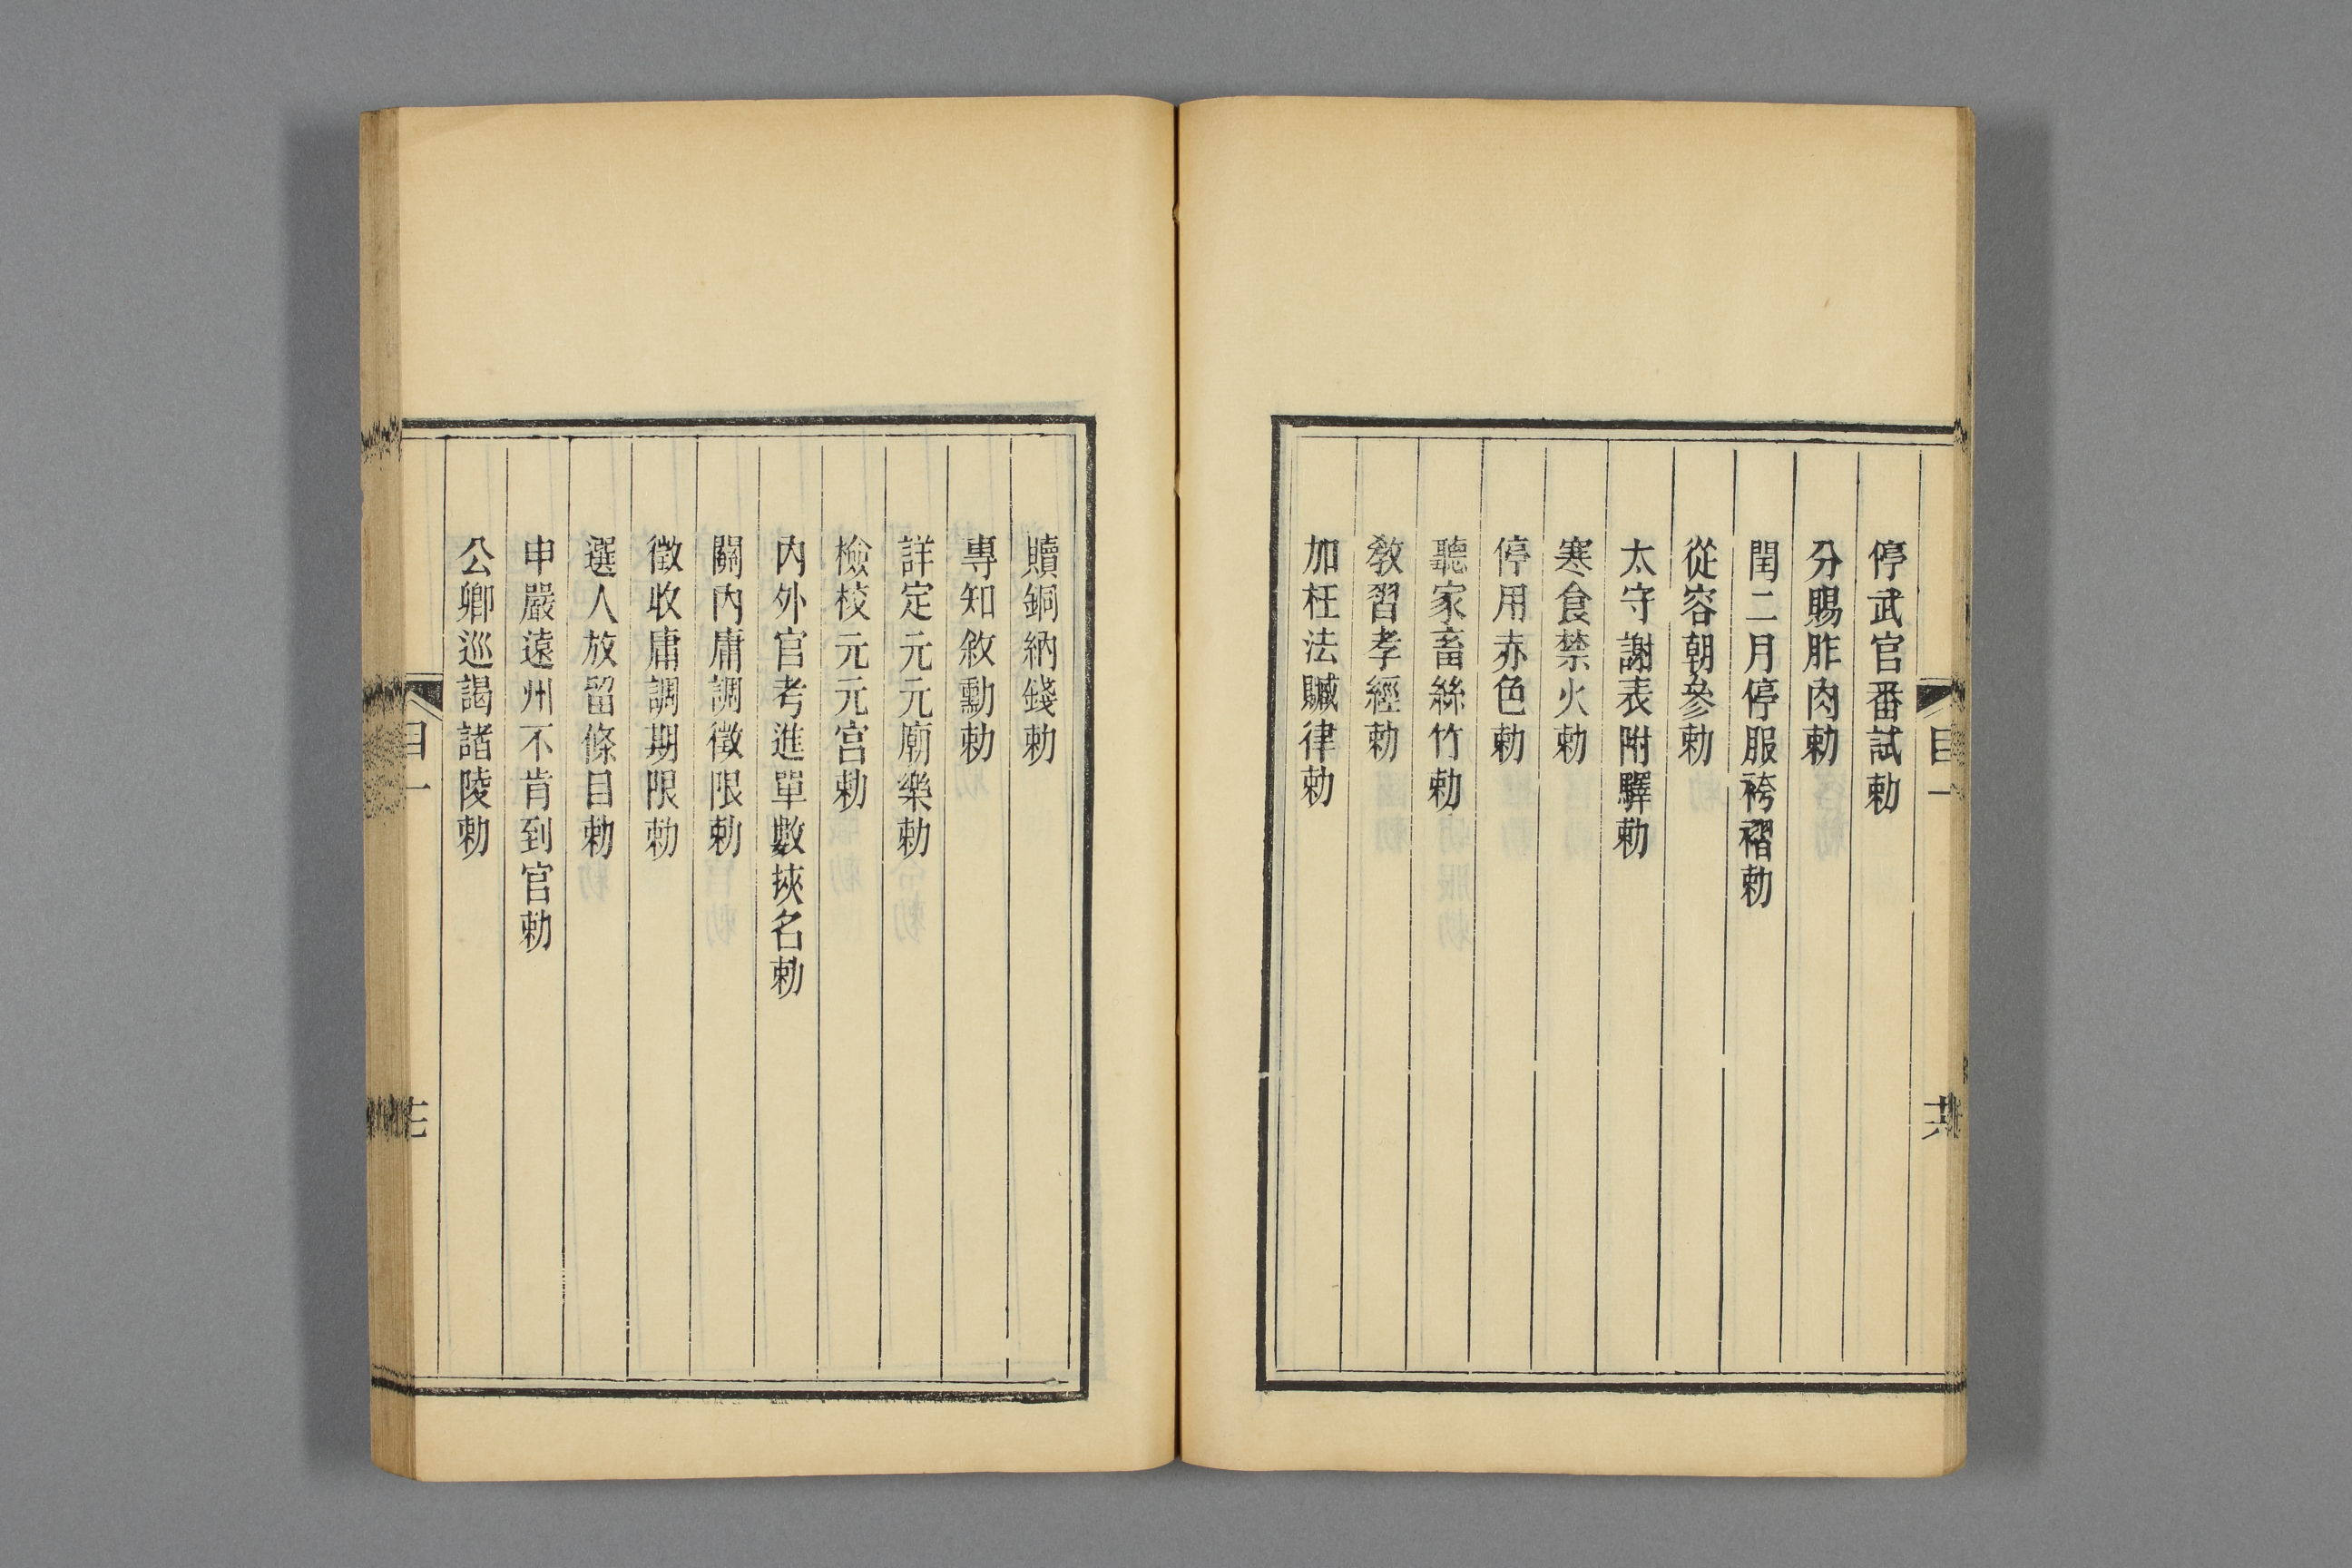 停武官番試勅
分賜胙肉勅
閏二月停服袴褶勅
從容朝參勅
太守謝表附驛勅
寒食禁火勅
停用赤色勅
聽家畜絲竹勅
敎習孝經勅
加枉法贓律勅
贖銅納錢勅
專知敘勳勅
詳定元元廟樂勅
檢校元元宮勅
內外官考進單數挾名勅
關內庸調徵限勅
徵收庸調期限勅
選人放留條目勅
申嚴遠州不肯到官勅
公卿巡謁諸陵勅
目一